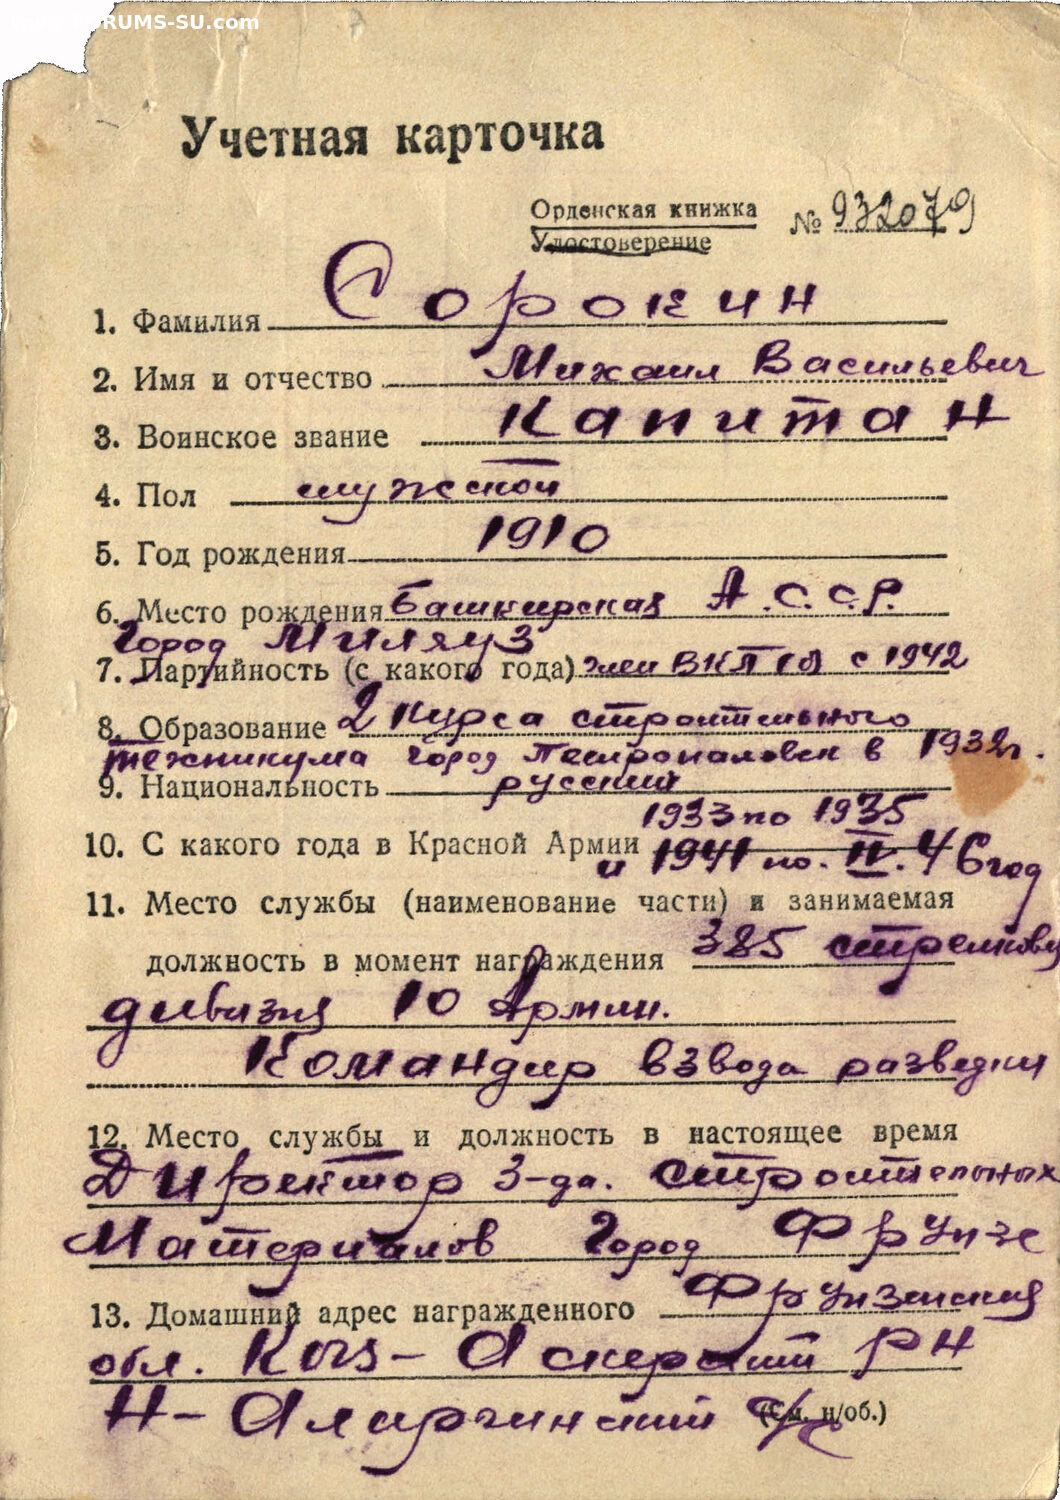 FORUMS-SU.com
Учетная карточка
Орденская книжка № 932079
Удостоверение
1. Фамилия Сорокин
2. Имя и отчество Михаил Васильевич
3. Воинское звание Капитан
4. Пол мужской
5. Год рождения 1910
6. Место рождения Башкирская А.С.С.Р.
Город Миляуз
7. Партийность (с какого года) член ВКП(б) с 1942
8. Образование 2 курса строительного
техникума город Петропаловск в 1932г.
9. Национальность русский
1933 по 1935
10. С какого года в Красной Армии и 1941 по. IV. 46 год
11. Место службы (наименование части) и занимаемая
должность в момент награждения 385 стрелкову
дивизия 10 Армии.
Командир взвода разведки
12. Место службы и должность в настоящее время
Директор 3-да. строительных
Материалов Город Фрунзе
13. Домашний адрес награжденного Фрунзенская
обл. Аскер РН
Н- Аларчинский с/с
(См. н/об.)